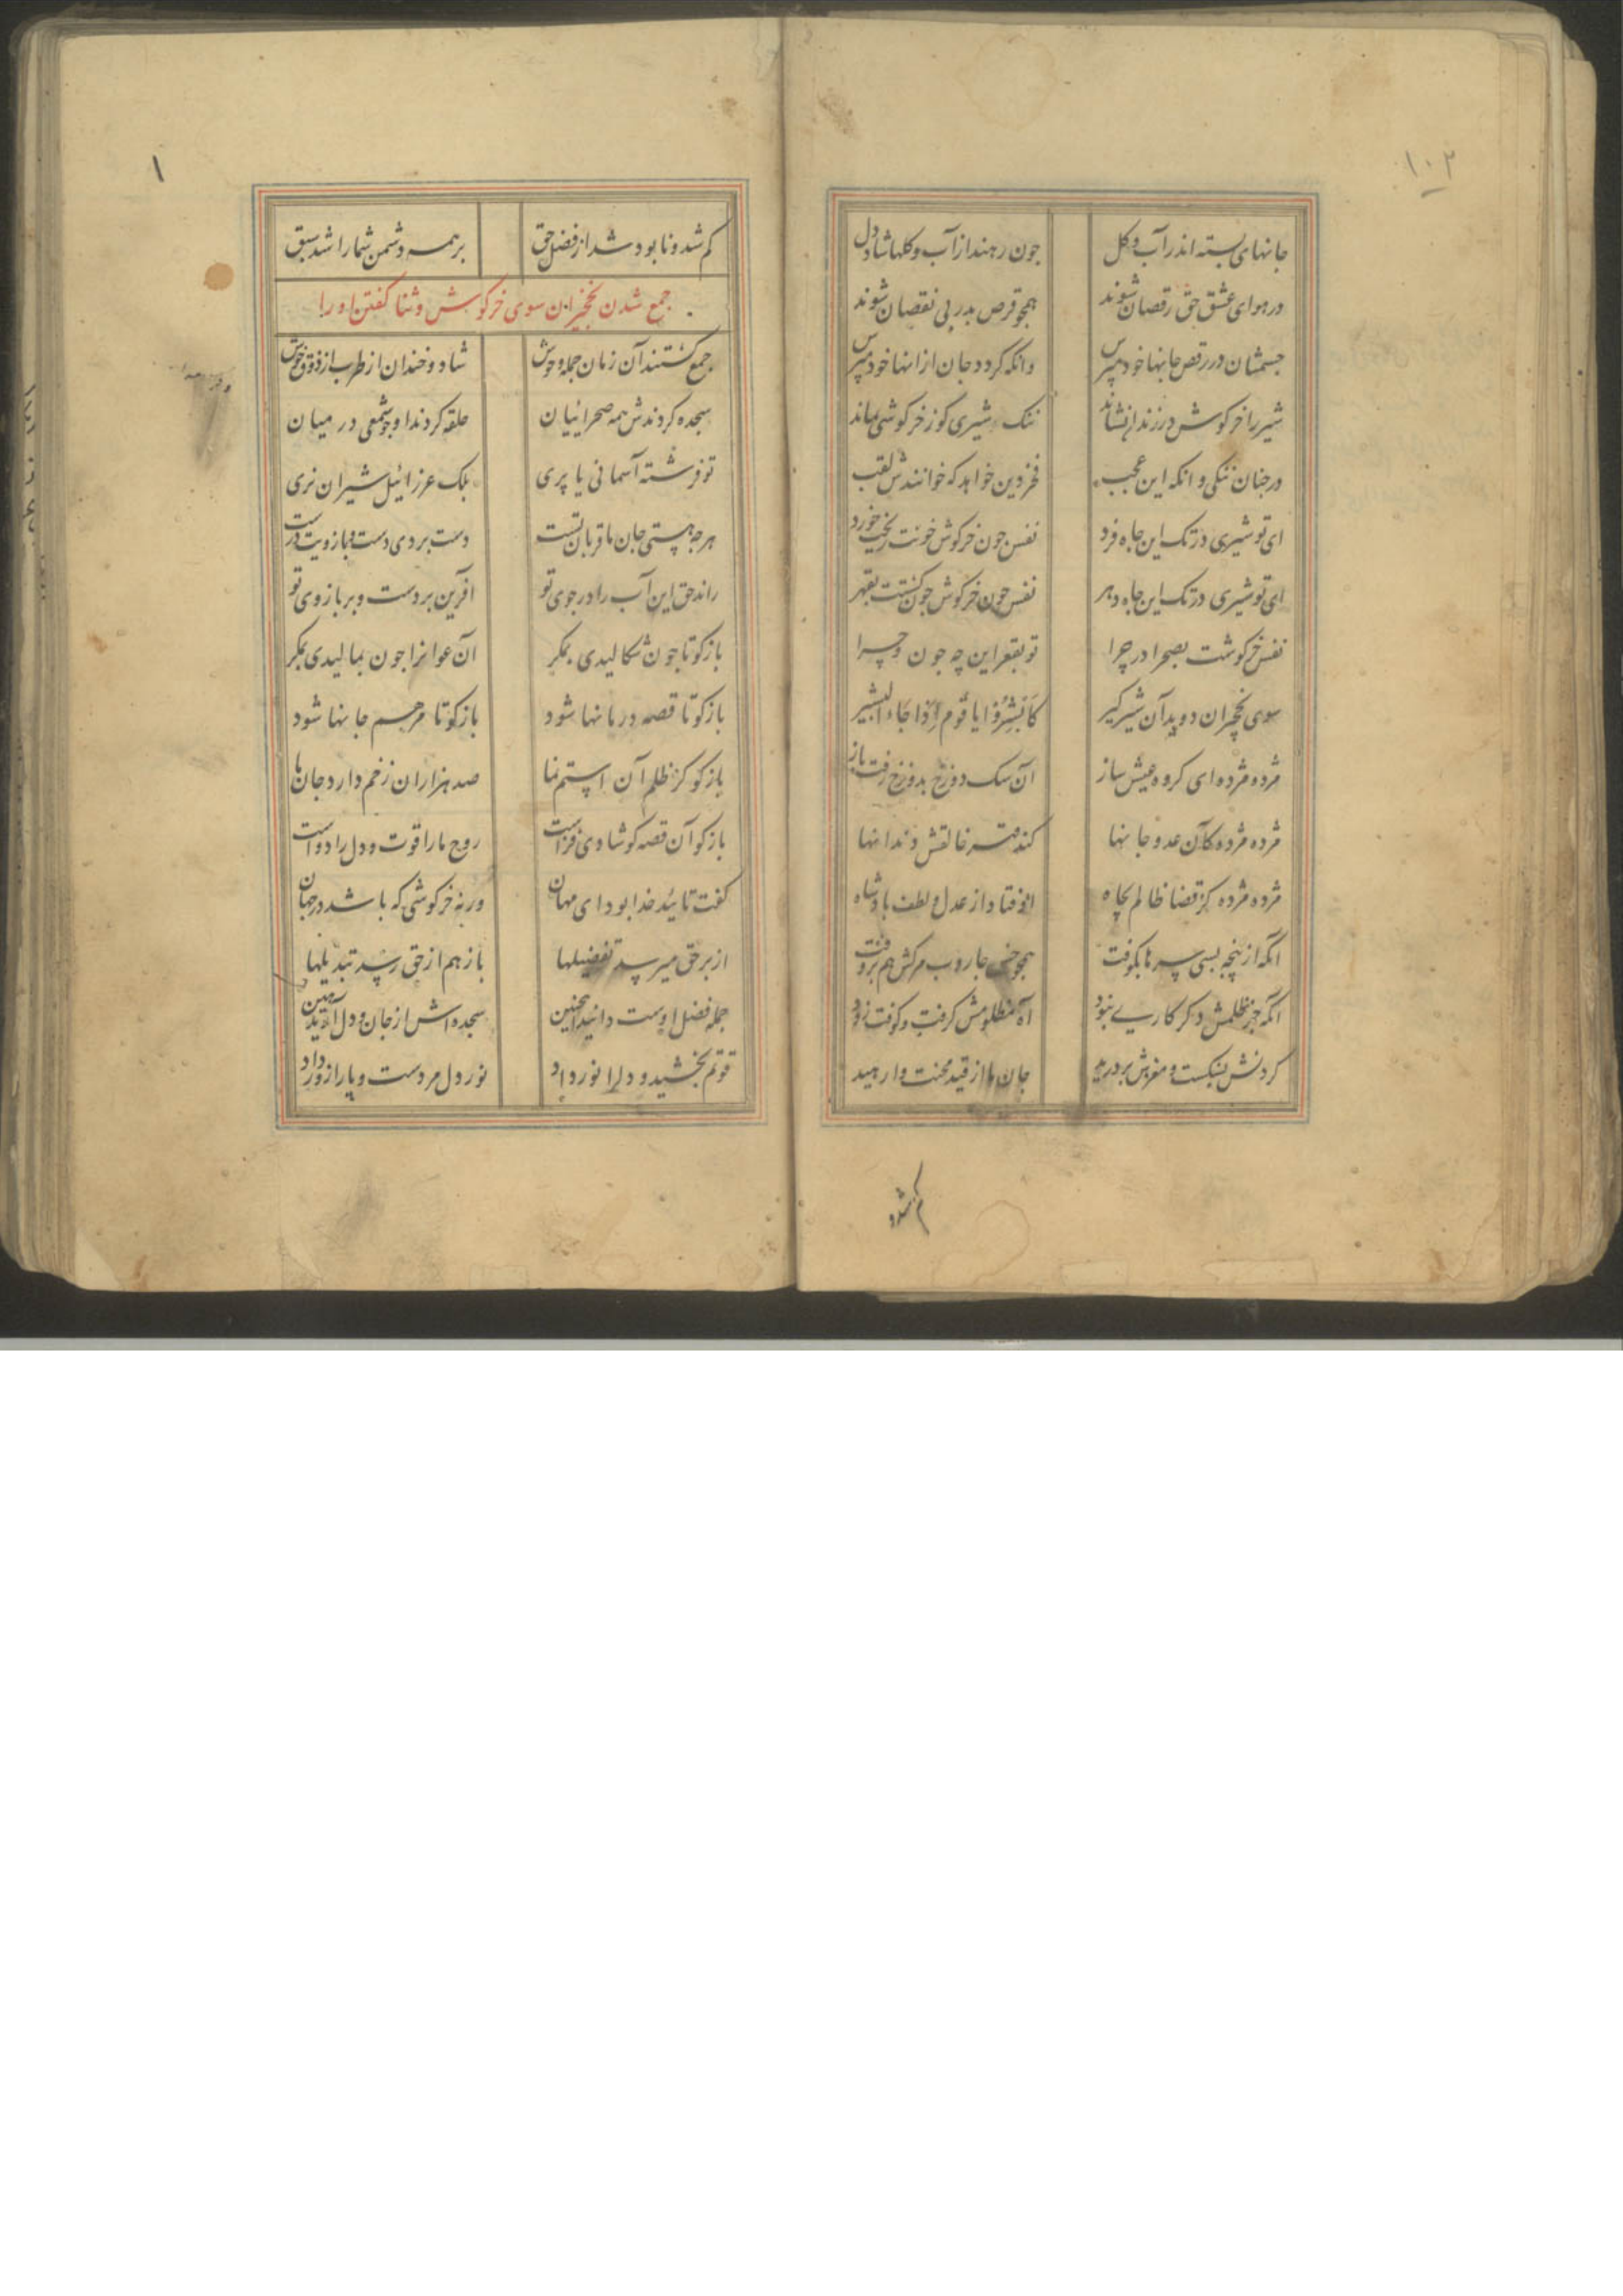 ۱۰۲
جانهای بسته اندر آب و کل جون رهند از آب و کلها شاد دل
در هوای عشق حق رقصان شوند همچو قرص بدر بی نقصان شوند
جسمشان در رقص جانها خود مپرس وانکه کردد جان از انها خود مپرس
شیر را خرکوش در زندان نشاند ننک شیری کوز خرکوشی بماند
درجنان ننکی و انکه این عجب فخر دین خواهد که خوانندش لقب
ای تو شیری در تک این جاه فرد نفس جون خرکوش خونت ریخت خورد
ای تو شیری در تک این جاه دهر نفس جون خرکوش جون کشتت بقهر
نفس خرکوشت بصحرا در چرا تو بقعر این چه جون و چرا
سوی نخچیران دوید آن شیر کیر کابشروا یا قوم اذا جاء البشیر
مژده مژده ای کروه عیش ساز آن سک دوزخ بدوزخ رفت باز
مژده مژده کان عدو جانها کند قهر خالقش دندانها
مژده مژده کز قضا ظالم بچاه اوفتاد از عدل و لطف بادشاه
انکه از پنجه بسی سرها بکوفت همجو خس جاروب مرکش هم بروفت
انکه جز ظلمش دکر کاری نبود آه مظلومش کرفت و کوفت زود
کردنش بشکست و مغزش بردرید جان ما از قید محنت وارهید
کم شد و
۱
کم شد و نابود شد از فضل حق بر همه دشمن شما را شد سبق
جمع شدن نخجیران سوی خرکوش و ثنا کفتن او را
جمع کشتند آن زمان جمله وحوش شاد و خندان از طرب از ذوق جوش
حلقه کردند او جو شمعی در میان سجده کردندش همه صحراییان
تو فرشته آسمانی یا پری بلک عزرائیل شیران نری
هرجه هستی جان ما قربان تست دست بردی دست و بازویت درست
راند حق این آب را در جوی تو آفرین بر دست و بر بازوی تو
بازکو تا جون سکالیدی بمکر آن عوانرا جون بمالیدی بمکر
بازکو تا قصه درمانها شود بازکو تا مرهم جانها شود
بازکو کز ظلم آن استم نما صد هزاران زخم دارد جان ما
بازکو آن قصه کو شادی فزاست روح ما را قوت و دل را دواست
کفت تائید خدا بود ای مهان ورنه خرکوشی که باشد در جهان
از بر حق میرسد تفضیلها باز هم از حق رسد تبدیلها
جمله فضل اوست دانید اینجنین سجده اش از جان و دل آرید هین
قوتم بخشید و دلرا نور داد نور دل مر دست و پا را زور داد